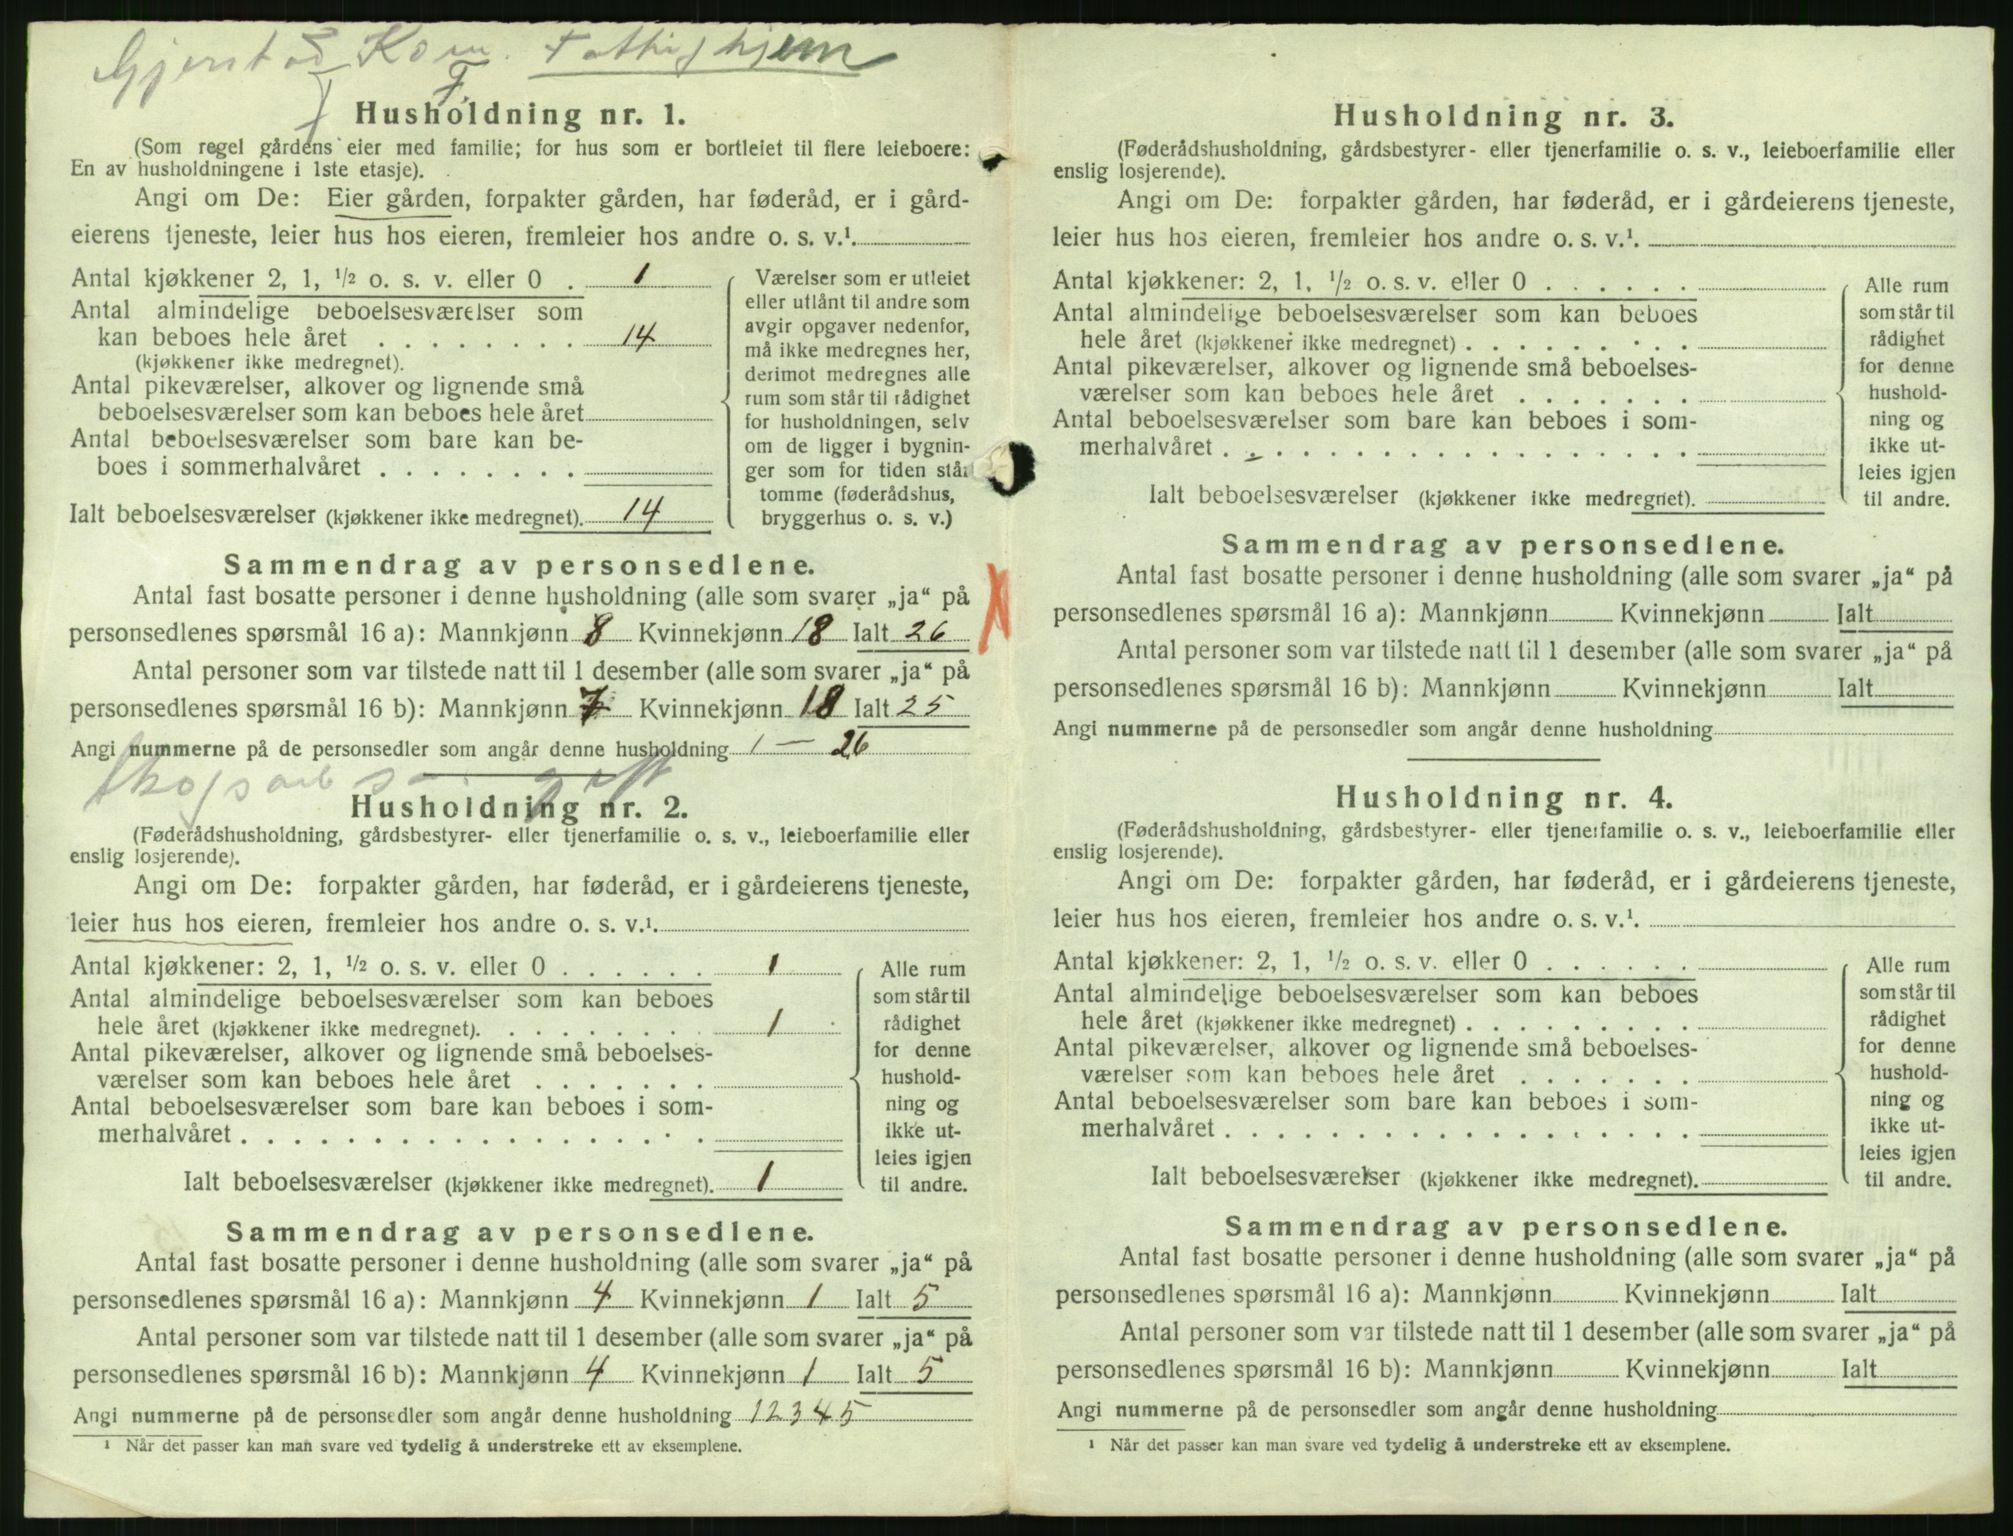 Gjerstad Kom. Fattighjem
F.
Husholdning nr. 1.
(Som regel gårdens eier med familie; for hus som er bortleiet til flere leieboere:
En av husholdningene i 1ste etasje).
Angi om De: Eier gården, forpakter gården, har føderåd, er i gård-
eierens tjeneste, leier hus hos eieren, fremleier hos andre o. s. v.¹.
Antal kjøkkener 2, 1, ½ o. s. v. eller 0 . 1
Antal almindelige beboelsesværelser som
kan beboes hele året . . . . . . . . 14
(kjøkkener ikke medregnet).
Antal pikeværelser, alkover og lignende små
beboelsesværelser som kan beboes hele året
Antal beboelsesværelser som bare kan be-
boes i sommerhalvåret . . . . . . . .
Ialt beboelsesværelser (kjøkkener ikke medregnet). 14
Værelser som er utleiet
eller utlånt til andre som
avgir opgaver nedenfor,
må ikke medregnes her,
derimot medregnes alle
rum som står til rådighet
for husholdningen, selv
om de ligger i bygnin-
ger som for tiden står
tomme (føderådshus,
bryggerhus o. s. v.)
Sammendrag av personsedlene.
Antal fast bosatte personer i denne husholdning (alle som svarer „ja“ på
personsedlenes spørsmål 16 a): Mannkjønn 8 Kvinnekjønn 18 Ialt 26
Antal personer som var tilstede natt til 1 desember (alle som svarer „ja“ på
personsedlenes spørsmål 16 b): Mannkjønn 7 Kvinnekjønn 18 Ialt 25
Angi nummerne på de personsedler som angår denne husholdning 1 — 26
Husholdning nr. 2.
(Føderådshusholdning, gårdsbestyrer- eller tjenerfamilie o. s. v., leieboerfamilie eller
enslig losjerende).
Angi om De: forpakter gården, har føderåd, er i gårdeierens tjeneste,
leier hus hos eieren, fremleier hos andre o. s. v.¹.
Antal kjøkkener: 2, 1, ½ o. s. v. eller 0 . . . . . . 1
Antal almindelige beboelsesværelser som kan beboes
hele året (kjøkkener ikke medregnet). . . . . . . . . 1
Antal pikeværelser, alkover og lignende små beboelses-
værelser som kan beboes hele året . . . . . . .
Antal beboelsesværelser som bare kan beboes i som-
merhalvåret . . . . . . . . . . . . . . . . . .
Ialt beboelsesværelser (kjøkkener ikke medregnet). 1
Alle rum
som står til
rådighet
for denne
hushold-
ning og
ikke ut-
leies igjen
til andre.
Sammendrag av personsedlene.
Antal fast bosatte personer i denne husholdning (alle som svarer „ja“ på
personsedlenes spørsmål 16 a): Mannkjønn 4 Kvinnekjønn 1 Ialt 5
Antal personer som var tilstede natt til 1 desember (alle som svarer „ja“ på
personsedlenes spørsmål 16 b): Mannkjønn 4 Kvinnekjønn 1 Ialt 5
Angi nummerne på de personsedler som angår denne husholdning 1 2 3 4 5
¹ Når det passer kan man svare ved tydelig å understreke ett av eksemplene.
Husholdning nr. 3.
(Føderådshusholdning, gårdsbestyrer- eller tjenerfamilie o. s. v., leieboerfamilie eller
enslig losjerende).
Angi om De: forpakter gården, har føderåd, er i gårdeierens tjeneste,
leier hus hos eieren, fremleier hos andre o. s. v.¹.
Antal kjøkkener: 2, 1, ½ o. s. v. eller 0 . . . . . .
Antal almindelige beboelsesværelser som kan beboes
hele året (kjøkkener ikke medregnet) . . . . . . . . .
Antal pikeværelser, alkover og lignende små beboelses-
værelser som kan beboes hele året . . . . . . .
Antal beboelsesværelser som bare kan beboes i som-
merhalvåret . . . . . . . . . . . . . . . . . .
Ialt beboelsesværelser (kjøkkener ikke medregnet).
Alle rum
som står til
rådighet
for denne
hushold-
ning og
ikke ut-
leies igjen
til andre.
Sammendrag av personsedlene.
Antal fast bosatte personer i denne husholdning (alle som svarer „ja“ på
personsedlenes spørsmål 16 a): Mannkjønn Kvinnekjønn Ialt
Antal personer som var tilstede natt til 1 desember (alle som svarer „ja“ på
personsedlenes spørsmål 16 b): Mannkjønn Kvinnekjønn Ialt
Angi nummerne på de personsedler som angår denne husholdning
Husholdning nr. 4.
(Føderådshusholdning, gårdsbestyrer- eller tjenerfamilie o. s. v., leieboerfamilie eller
enslig losjerende).
Angi om De: forpakter gården, har føderåd, er i gårdeierens tjeneste,
leier hus hos eieren, fremleier hos andre o. s. v.¹.
Antal kjøkkener: 2, 1, ½ o. s. v. eller 0 . . . . . .
Antal almindelige beboelsesværelser som kan beboes
hele året (kjøkkener ikke medregnet) . . . . . . . . .
Antal pikeværelser, alkover og lignende små beboelses-
værelser som kan beboes hele året . . . . . . .
Antal beboelsesværelser som bare kan beboes i som-
merhalvåret . . . . . . . . . . . . . . . . . .
Ialt beboelsesværelser (kjøkkener ikke medregnet).
Alle rum
som står til
rådighet
for denne
hushold-
ning og
ikke ut-
leies igjen
til andre.
Sammendrag av personsedlene.
Antal fast bosatte personer i denne husholdning (alle som svarer „ja“ på
personsedlenes spørsmål 16 a): Mannkjønn Kvinnekjønn Ialt
Antal personer som var tilstede natt til 1 desember (alle som svarer „ja“ på
personsedlenes spørsmål 16 b): Mannkjønn Kvinnekjønn Ialt
Angi nummerne på de personsedler som angår denne husholdning
¹ Når det passer kan man svare ved tydelig å understreke ett av eksemplene.